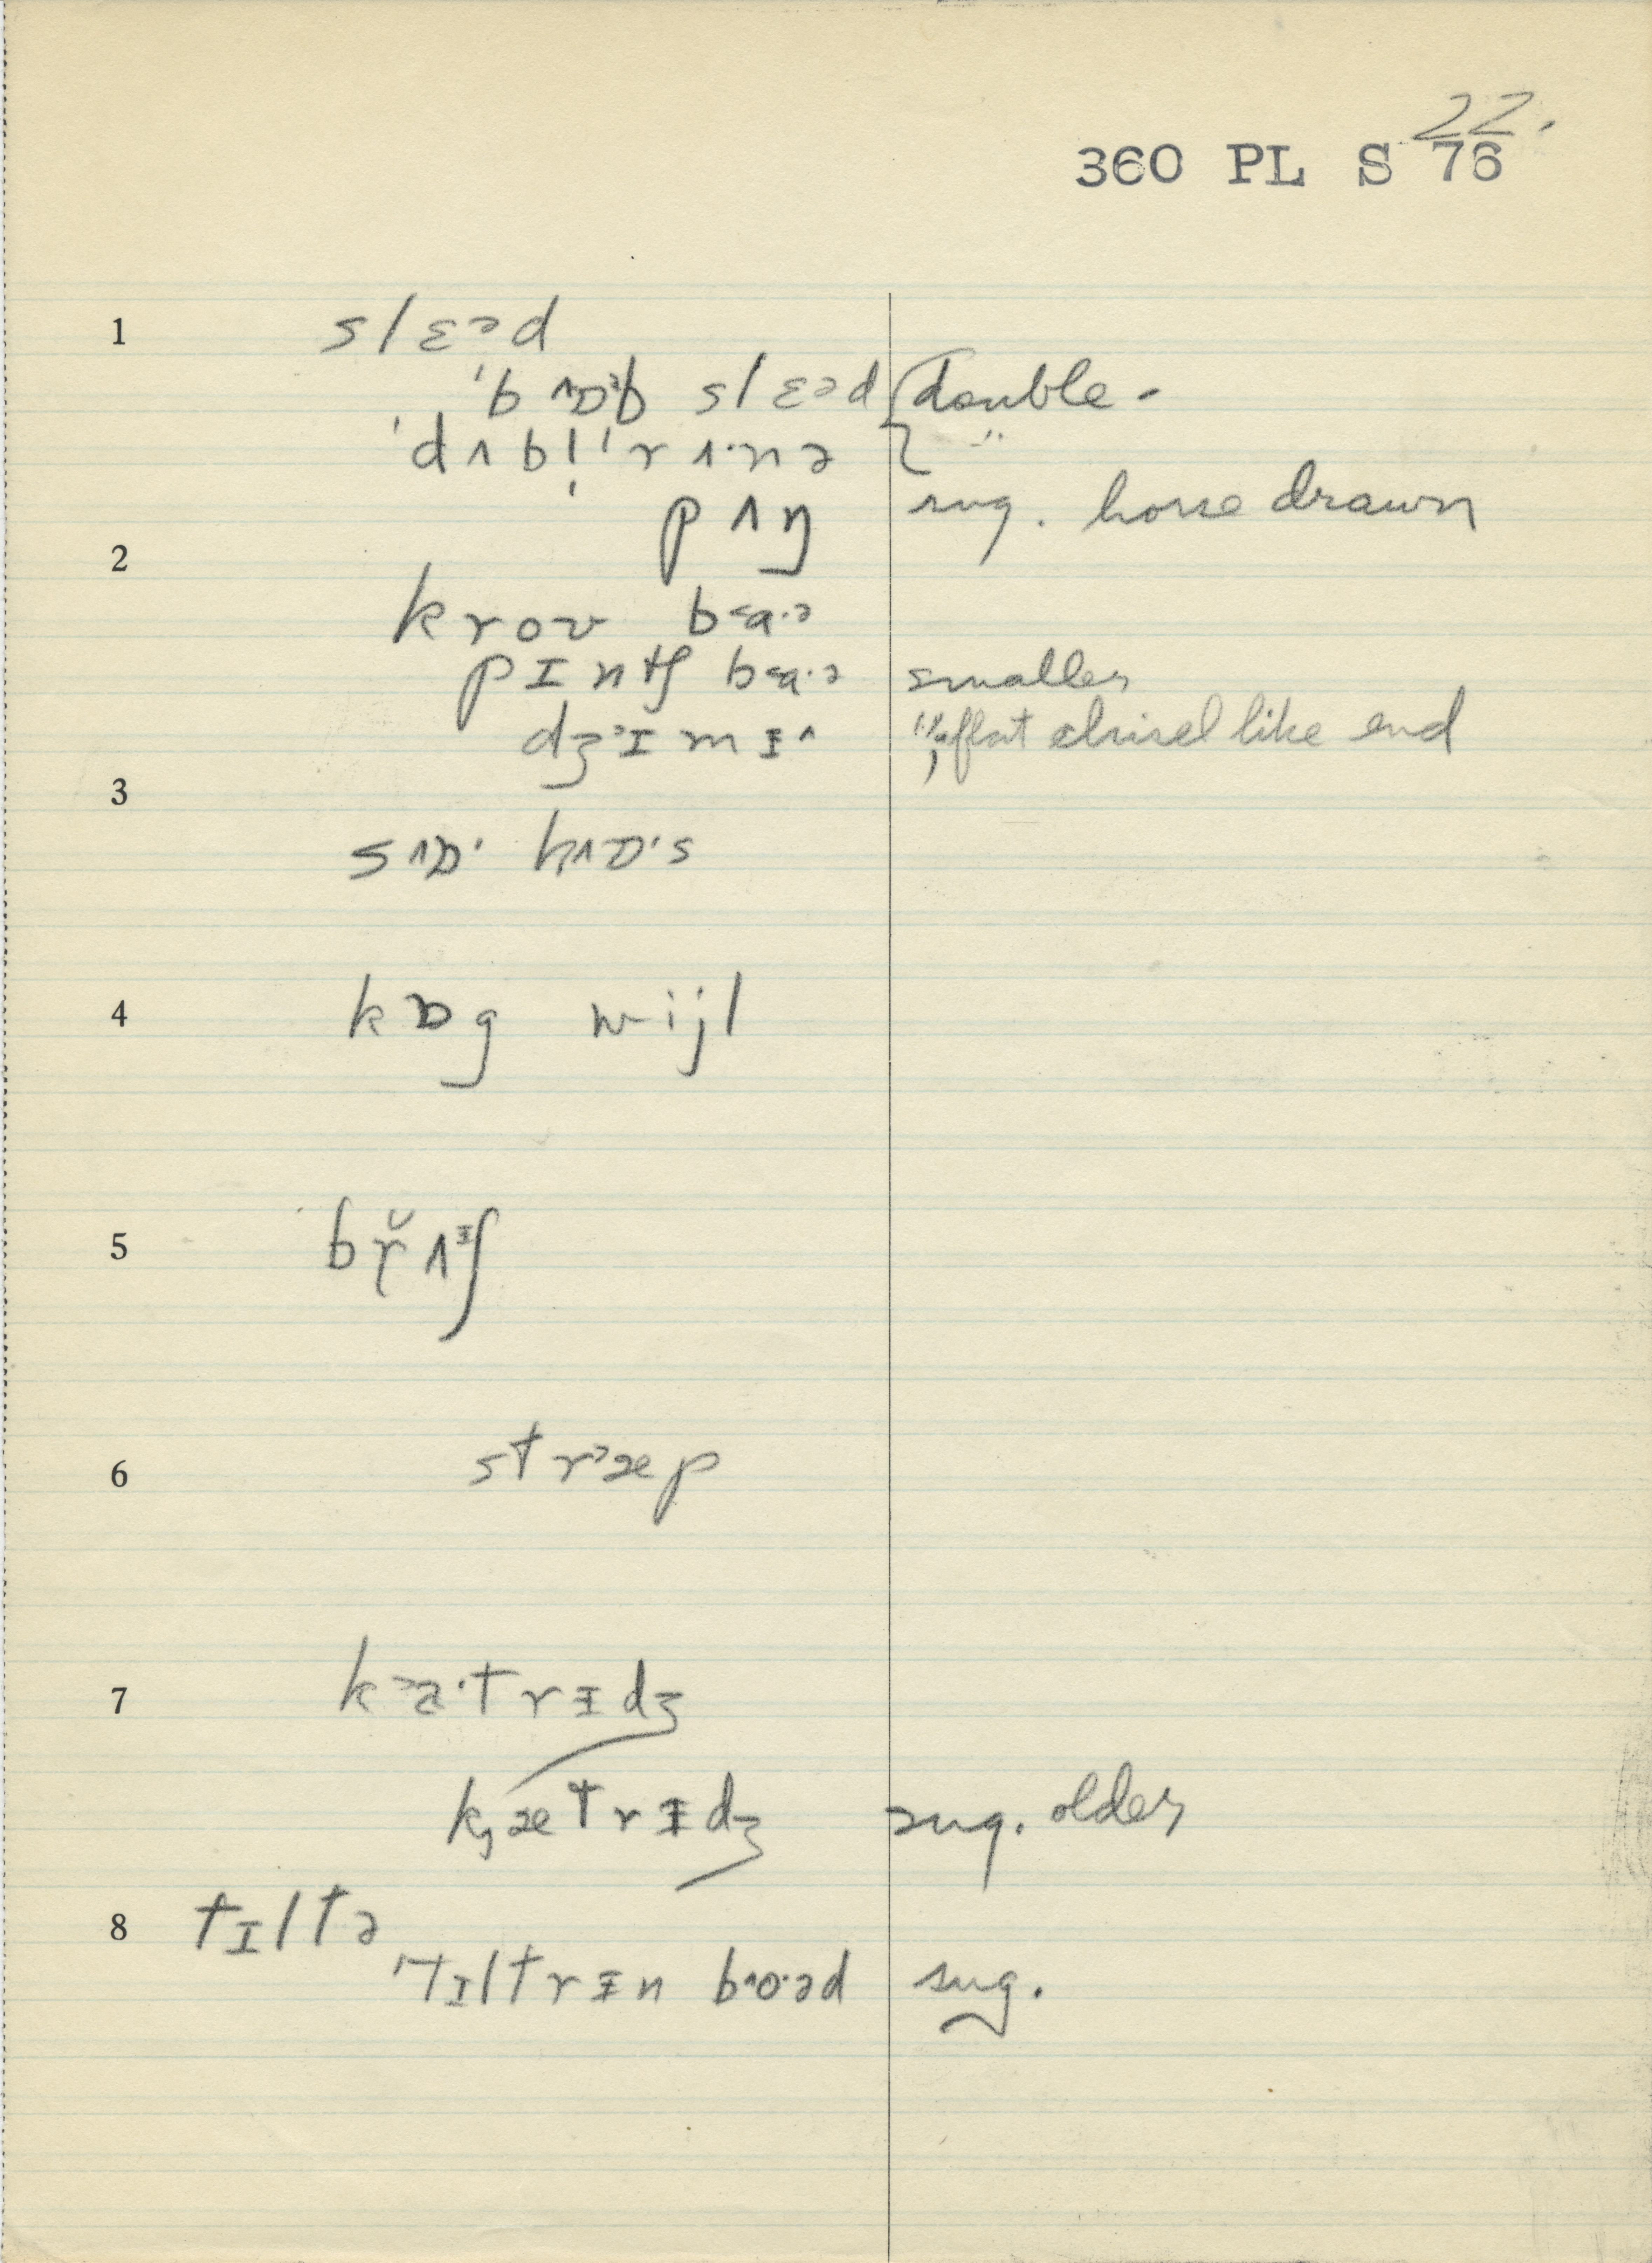 22.
360 PL S 76
1 slɛ>d
ˈbʌɒˑb slɛɔd double -
ˈdʌbl̩ ˈrʌ·nə "
pʌŋ sug. horse drawn
2
kroʊ ba·ə
pɪntʃ ba·ə smaller
dʒɪmɪ^ ", flat chisel like end
3
sʌɒ· hʌɒ·s
4 kɒg wijl
5 br̆ʌᵻʃ
6 str>æp
7 k>a·trᵻdʒ
kætrᵻdʒ sug. older
8 tɪltə
ˈtɪltrᵻn bo·əd sug.